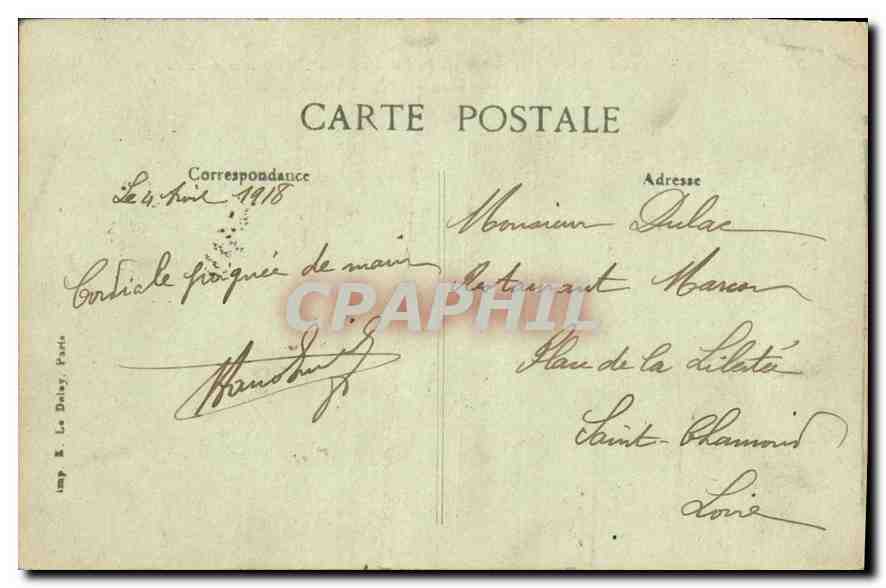 CARTE POSTALE
Correspondance
Le 4 Avril 1918
Cordiale poignée de main
Adresse
Monsieur Dulac
Restaurant Marcon
Place de la Liberté
Saint-Chamond
Loire
Imp E. Le Deley, Paris
CPAPHIL